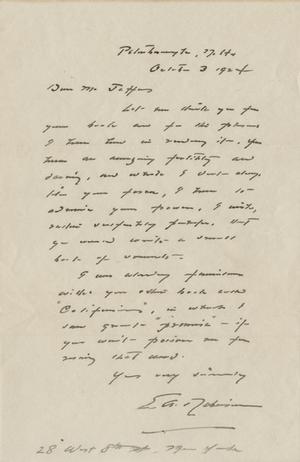 Peterborough, N.H.
October 3 1924
Dear Mr Jeffers
Let me thank you for
your book and for the pleasure
I have had in reading it. You
have an amazing fertility and
daring, and while I don't always
like your poems, I have to
admire your power. I wish,
rather selfishly perhaps, that
you would write a small
book of sonnets.
I was already familiar
with your other book called
"Californians", in which I
saw great "promise" — if
you will pardon me for
using that word.
Yours very sincerely
E. A. Robinson
28 West 8th St. New York